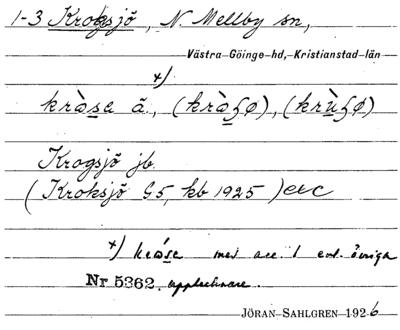 1-3 Krogsjö, N. Mellby sn,
Västra Göinge hd, Kristianstad län
+)
krὰse ã, (krὰʂø), (krùʂø)
Krogsjö jb
(Kroksjö G5, kb 1925) etc
+) kráse med acc. 1 enl. övriga
Nr 5362. upptecknare.
JÖRAN SAHLGREN 1926